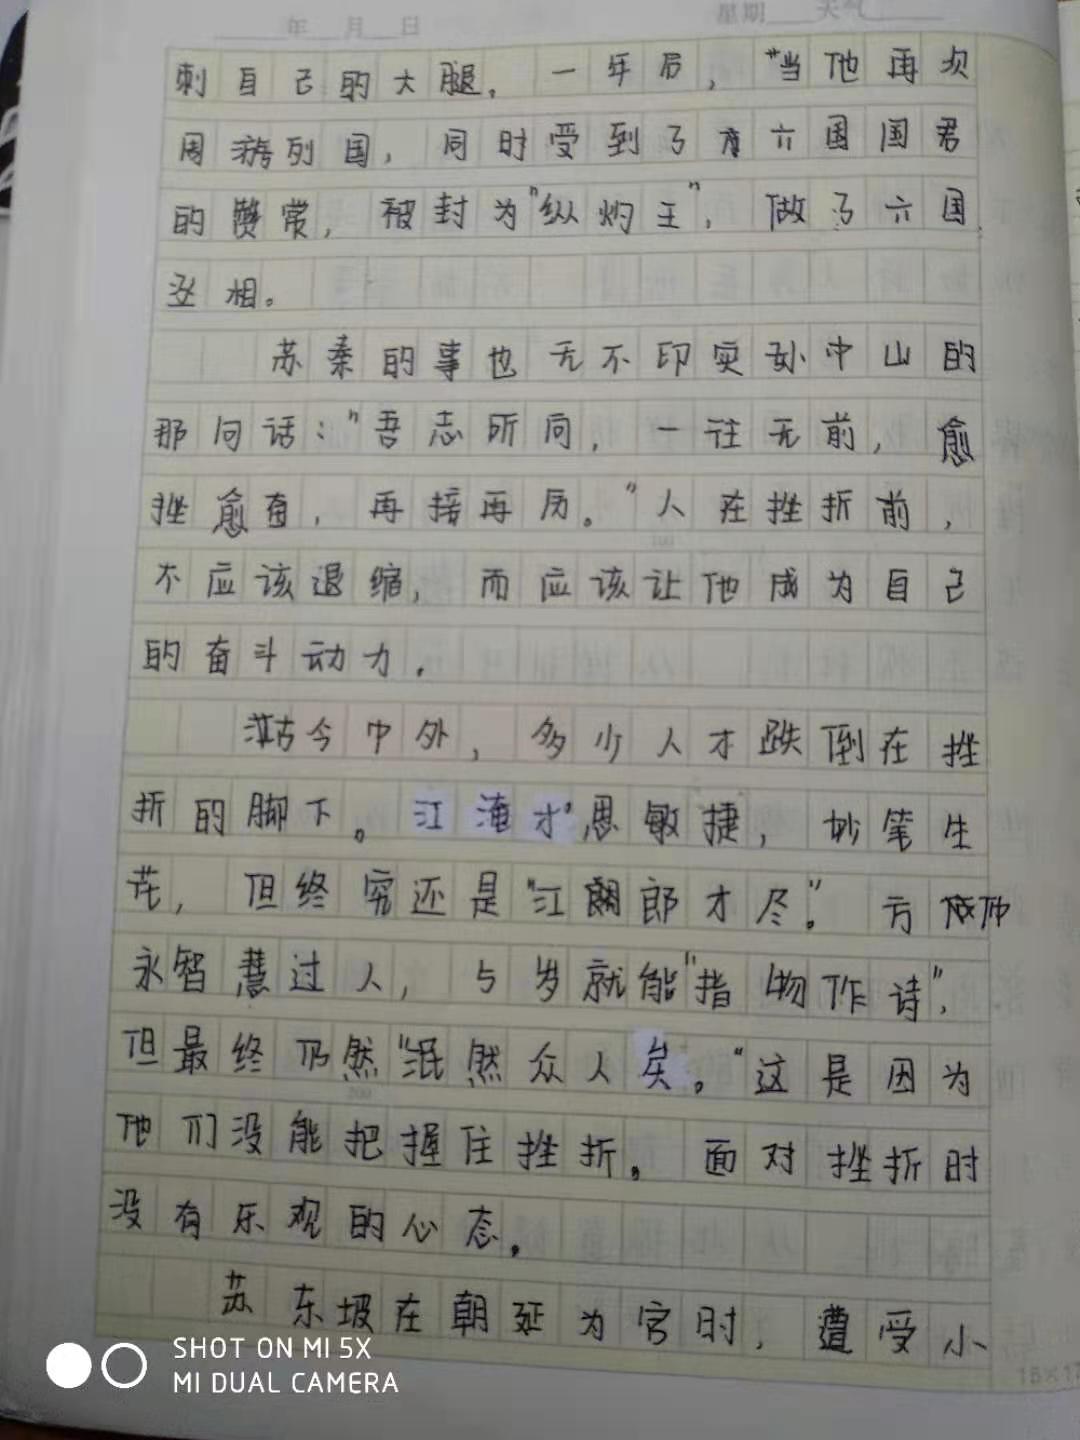 年 月 日 星期 天气
刺自己的大腿。一年后,"当他再次
周游列国,同时受到了六国国君
的赞赏,被封为"纵灼王",做了六国
丞相。
苏秦的事也无不印实孙中山的
那问话:"吾志所向,一往无前,愈
挫愈奋,再接再历。"人在挫折前,
不应该退缩,而应该让他成为自己
的奋斗动力.
古今中外,多少人才跌倒在挫
折的脚下。江淹才思敏捷,妙笔生
花,但终究还是"江郎才尽"。方仲
永智慧过人,5岁就能"指物作诗",
但最终仍然"泯然众人矣。"这是因为
他们没能把握住挫折。面对挫折时
没有乐观的心态。
苏东坡在朝延为官时,遭受小
SHOT ON MI 5X
MI DUAL CAMERA